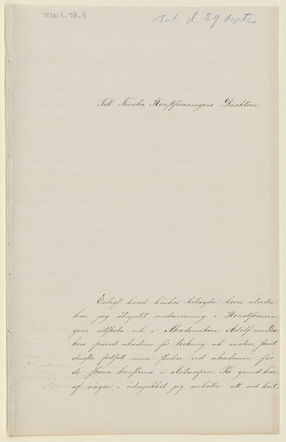 Ink. d. 29 Septbr
Till Finska Konstföreningens Direktion
Enligt hvad härhos bilagda bevis utvisar
har jag åtnjutit undervisning i Konstförenin-
gens ritskola och i Akademikern Adolf von Bec-
kers privat akademi för teckning och målning, samt
derefter fortsatt mina studier vid akademin för
de sköna konsterna i Antwerpen. På grund här-
af vågar i ödmjukhet jag anhålla att vid